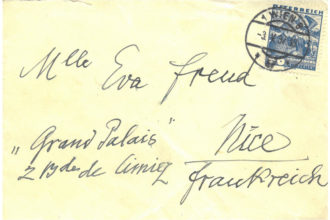 ÖSTERREICH
1 WIEN
Mlle Eva Freud
„Grand Palais"
2 Bde de Cimiez
Nice
Frankreich